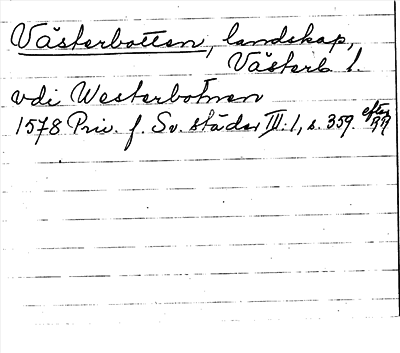 Västerbotten, landskap,
Västerb. l.
vdi Westerbotnen
1578 Priv. f. Sv. städer III: 1, s. 359. efter